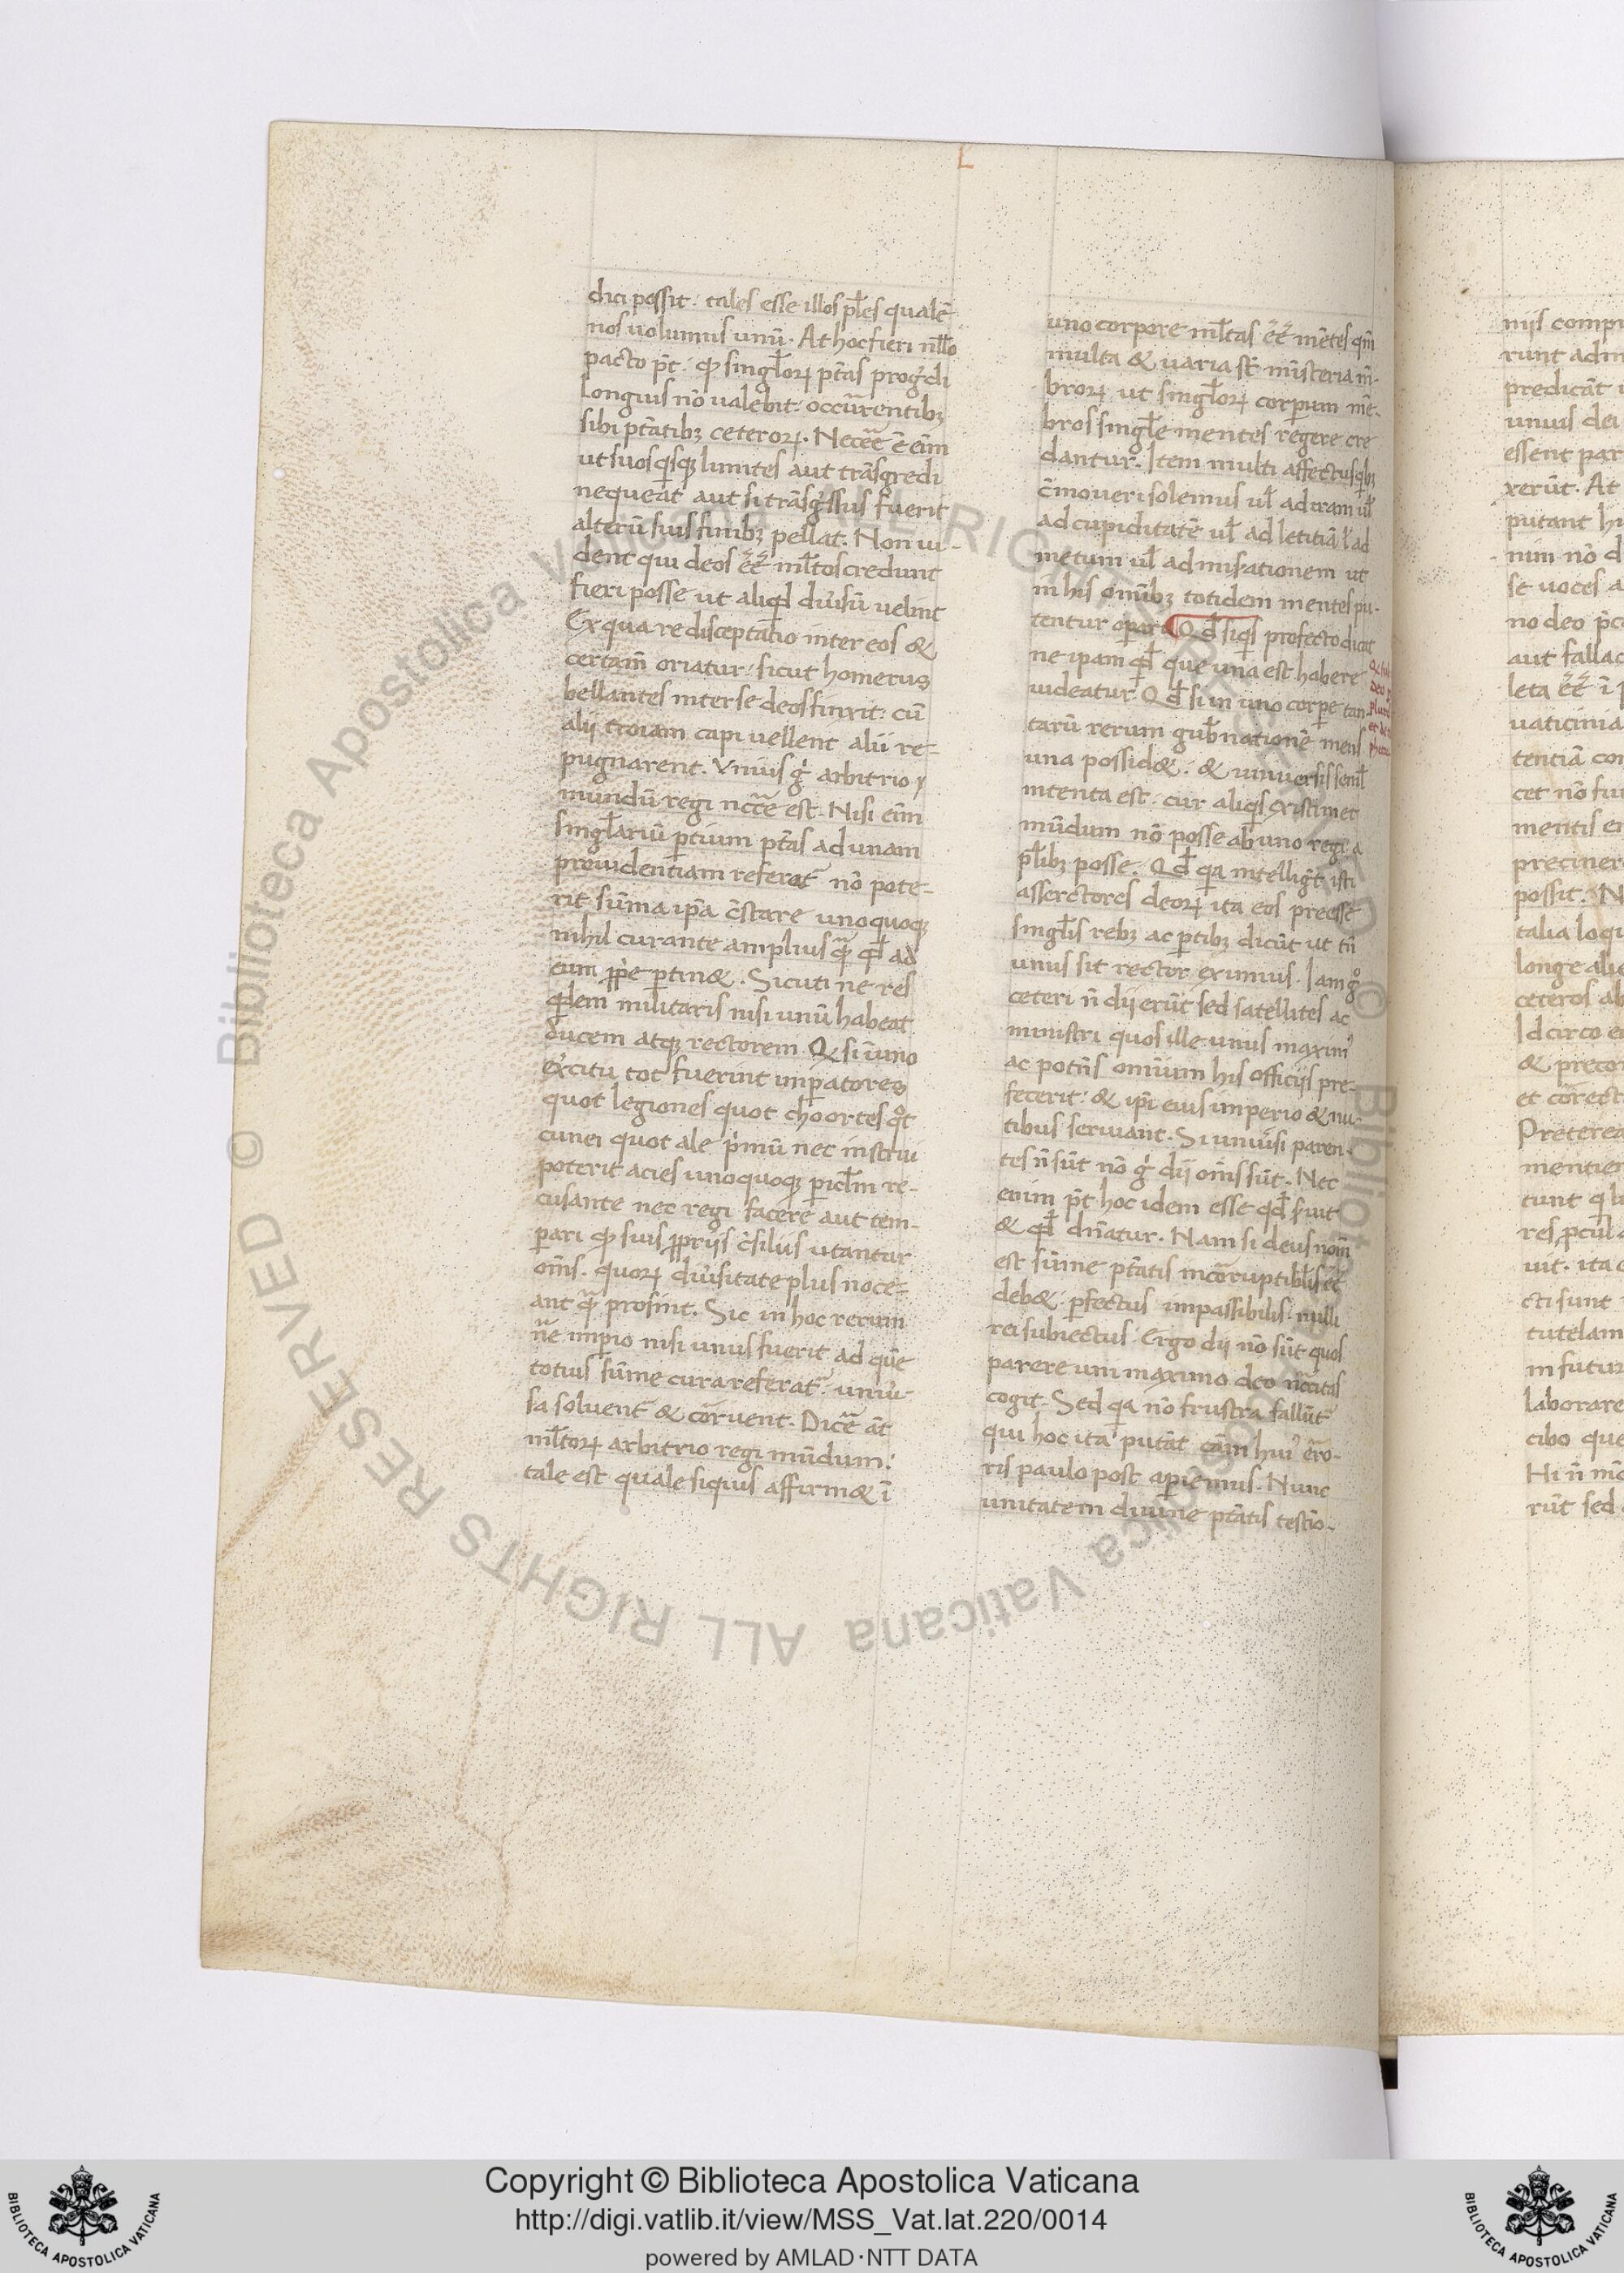 L
dici possit: tales esse illos pl̄es qualē
nos uolumus unū. At hoc fieri nl̄lo
pacto pt̄: qꝫ singl̄oꝝ ptās prog̍di
longius nō ualebit: occurrentibꝫ
sibi ptātibꝫ ceteroꝝ. Necēē ē eīm
ut suos qsqꝫ limites aut trāsgredi
nequeat̄ aut si trāsg̍ssus fuerit
alterū suis finibꝫ pellat. Non ui-
dent qui deos ēē ml̄tos credunt
fieri posse ut aliqd̄ diuīsū uelint
Ex qua re disceptatio inter eos &
certam̄ oriatur: sicut homerus
bellantes inter se deos finxit: cū
alij troiam capi uellent alii re-
pugnarent. Vnius g̍ arbitrio
mundū regi nccē est. Nisi eīm
singl̄ariū ꝑtium ptās ad unam
prouidentiam referat̄ nō pote-
rit sūma ipā c̄stare unoquoqꝫ
nihil curante amplius qꝫ̄ qd̄ ad
eum ꝓpe ꝑtin&. Sicuti ne res
qdem militaris nisi unū habeat
ducem atqꝫ rectorem. Q̄ si ī uno
ex̍citu tot fuerint imꝑatores
quot legiones quot choortes qt̊
cunei quot ale p̍mū nec instrui
poterit acies unoquoqꝫ ꝑicl̄m re-
cusante nec regi facere aut tem-
ꝑari qꝫ suis ꝓprijs c̄silijs utantur
om̄s. quoꝝ diuīsitate plus noce-
ant qꝫ̄ prosint. Sic in hoc rerum
nē imꝑio nisi unus fuerit ad quē
totius sūme cura referat̄: uniu̍-
sa soluent̄ & corruent. Dicē āt
ml̄toꝝ arbitrio regi mūdum:
tale est quale siquis affirm& ī
uno corpore ml̄tas ēē mētes qm̄
multa & uaria st̄ mīsteria mē-
broꝝ ut singl̄oꝝ corꝑum mē-
bros singl̄e mentes regere cre
dantur. Item multi affectus qbꝫ
c̄moueri solemus ul̄ ad iram ul̄
ad cupiditatē ul̄ ad letitiā l̄ ad
metum ul̄ ad mis̍ationem ut
in his omībꝫ totidem mentes pu-
tentur oꝑari Qd̄ siqs profecto dicat
ne ipam qd̄ que una est habere
uideatur. Qd̄ si in uno corꝑe tan-
tarū rerum gub̄nationē mens
una possid&: & uniuersis seml̄
intenta est: cur aliqs existimet
mūdum nō posse ab uno regi a
pl̄ibꝫ posse. Qd̄ qa intelligt̄ isti
assertores deoꝝ ita eos preesse
singl̄is rebꝫ ac ꝑtibꝫ dicūt ut tn̄
unus sit rector eximius. Iam g̊
ceteri n̄ dij erūt sed satellites ac
ministri quos ille unus maxim̓
ac potn̄s omium his officijs pre-
fecerit: & ipi eius imperio & nu-
tibus seruiant. Si uniu̍si paren-
tes n̄ sūt nō g̍ dij om̄s sūt. Nec
enim pt̄ hoc idem esse qd̄ s̍uit
& qd̄ dn̄atur. Nam si deus nom̄
est sūme ptātis incorruptibl̄is ēē
deb&: ꝑfectus impassibilis: nulli
rei subiectus. Ergo dij nō sūt quos
parere uni maximo deo nccitas
cogit. Sed qa nō frustra fallūt̄
qui hoc ita putāt cām hui̓ erro-
ris paulo post aꝑiemus. Nunc
unitatem diuine ptātis testīo-
nijs comp
runt adm
predicāt
unius dei
essent par
xerūt. At
putant hi
nim nō d
se uoces a
no deo
aut fallac
leta ēē ī
uaticinia
tentiā con
cet nō fu
mentis
preciner
possit. N
talia loqu
longe alie
ceteros ab
Idcirco
& precor
et corect
Preterea
mentien
tunt
res ꝓcul
uit. ita
cti sunt
tutelam
in futur
laborare
cibo que
Hi n̄
rūt sed
© Biblioteca Apostolica Vaticana ALL RIGHTS RESERVED
© Biblioteca Apostolica Vaticana ALL RIGHTS RESERVED
BIBLIOTECA APOSTOLICA VATICANA
Copyright © Biblioteca Apostolica Vaticana
http://digi.vatlib.it/view/MSS_Vat.lat.220/0014
powered by AMLAD·NTT DATA
BIBLIOTECA APOSTOLICA VATICANA